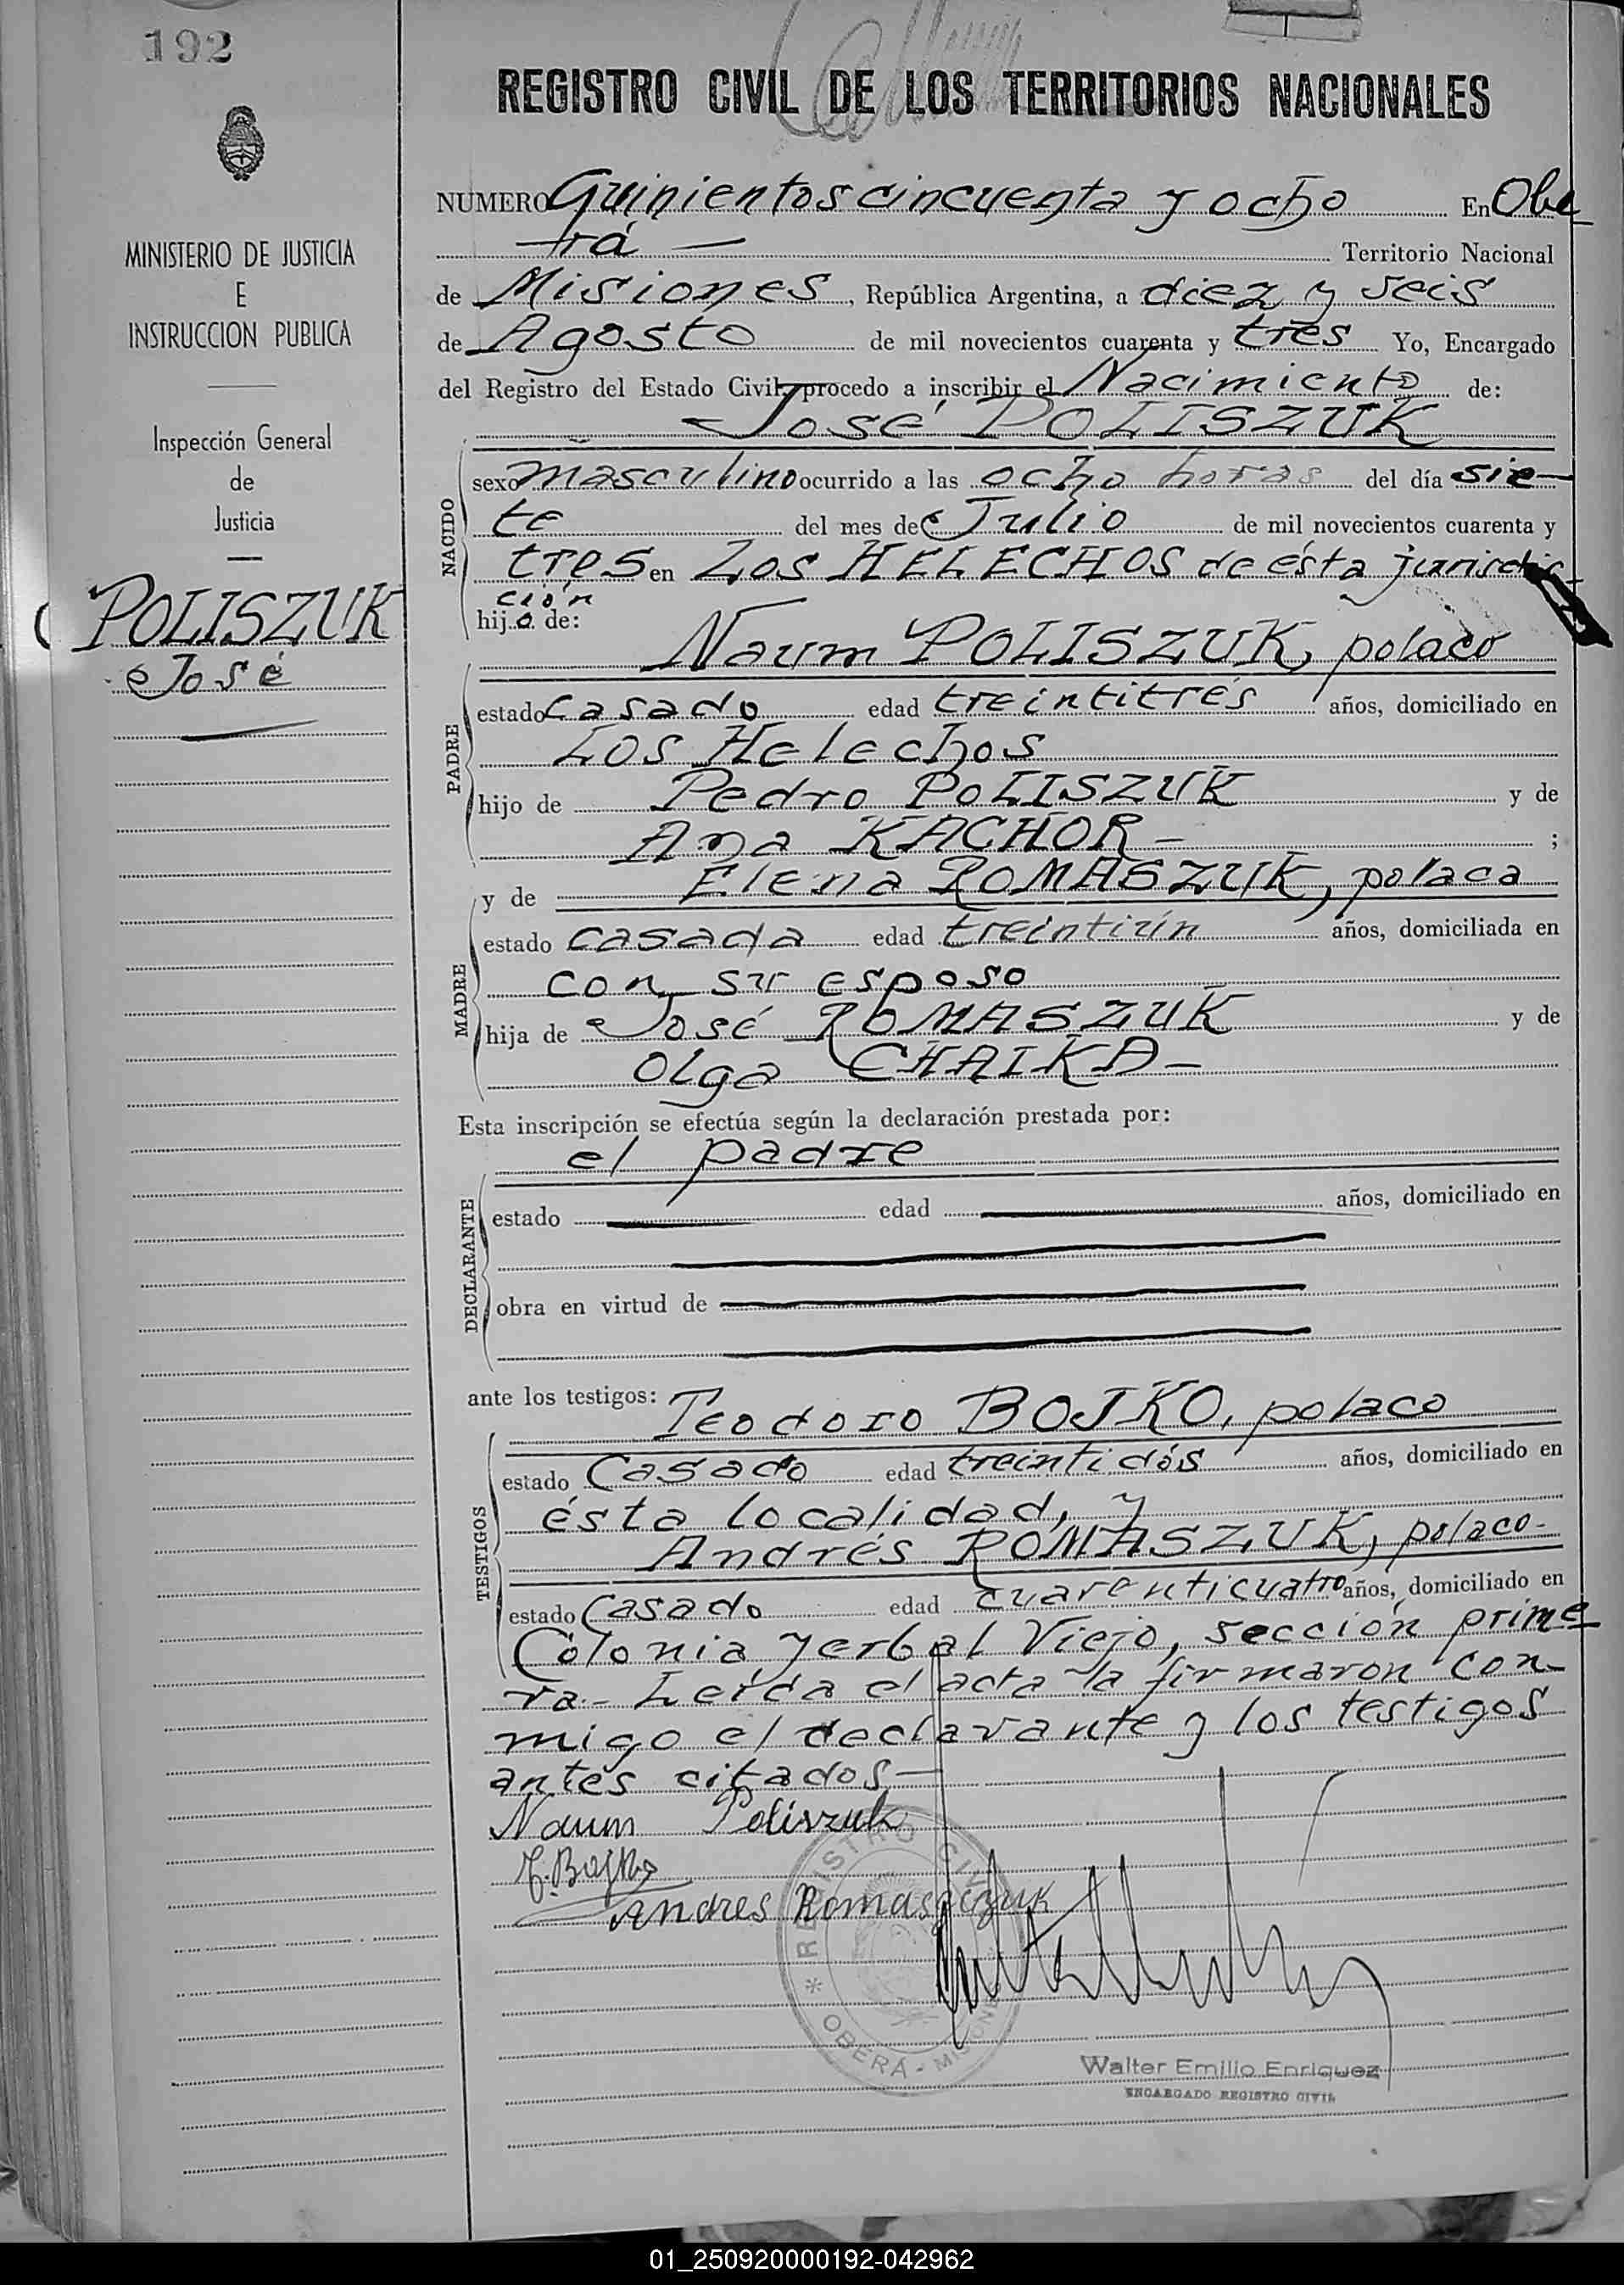 192
MINISTERIO DE JUSTICIA
E
INSTRUCCION PUBLICA
Inspección General
de
Justicia
POLISZUK
José
REGISTRO CIVIL DE LOS TERRITORIOS NACIONALES
NUMERO Quinientos cincuenta y ocho En Obe
rá — Territorio Nacional
de Misiones, República Argentina, a diez y seis
de Agosto de mil novecientos cuarenta y tres Yo, Encargado
del Registro del Estado Civil, procedo a inscribir el Nacimiento de:
José POLISZUK
NACIDO
sexo masculino ocurrido a las ocho horas del día sie-
te del mes de Julio de mil novecientos cuarenta y
tres en Los HELECHOS de ésta jurisdic-
ción
hijo de:
Naum POLISZUK, polaco
PADRE
estado casado edad treintitrés años, domiciliado en
Los Helechos
hijo de Pedro POLISZUK y de
Ana KACHOR - ;
y de Elena ROMASZUK, polaca
MADRE
estado casada edad treintiún años, domiciliada en
con su esposo
hija de José ROMASZUK y de
Olga CHAIKA -
Esta inscripción se efectúa según la declaración prestada por:
el padre
DECLARANTE
estado edad años, domiciliado en
obra en virtud de
ante los testigos: Teodoro BOJKO, polaco
TESTIGOS
estado Casado edad treintidós años, domiciliado en
ésta localidad, y
Andrés ROMASZUK, polaco-
estado Casado edad cuarenticuatro años, domiciliado en
Colonia Yerbal Viejo, sección prime-
ra.- Leída el acta la firmaron con-
migo el declarante y los testigos
antes citados —
Naum Poliszuk
T. Bojko
Andres Romaszczuk
REGISTRO CIVIL
* OBERÁ - MISIONES
Walter Emilio Enriquez
ENCARGADO REGISTRO CIVIL
01_250920000192-042962